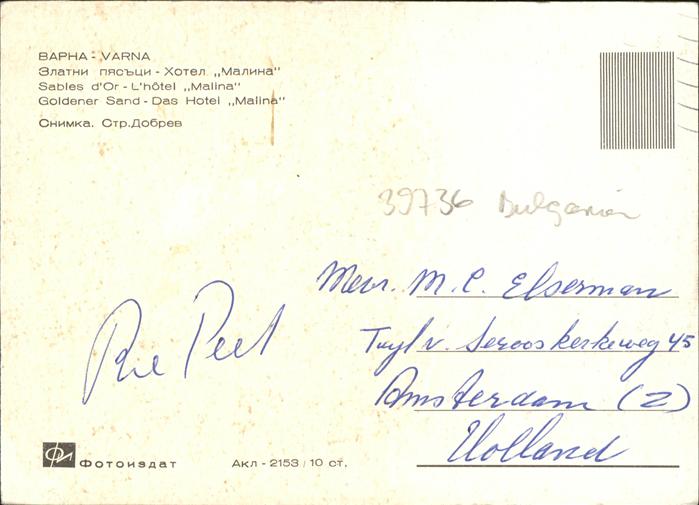 ВАРНА - VARNA
Златни пясъци - Хотел „Малина“
Sables d'Or - L'hôtel „Malina“
Goldener Sand - Das Hotel „Malina“
Снимка. Стр.Добрев
39736 Bulgarien
Mevr. M. C. Elserman
Tuyl v. Serooskerkeweg 45
Amsterdam (Z)
Holland
Peet
Фотоиздат
Акл - 2153 / 10 ст.